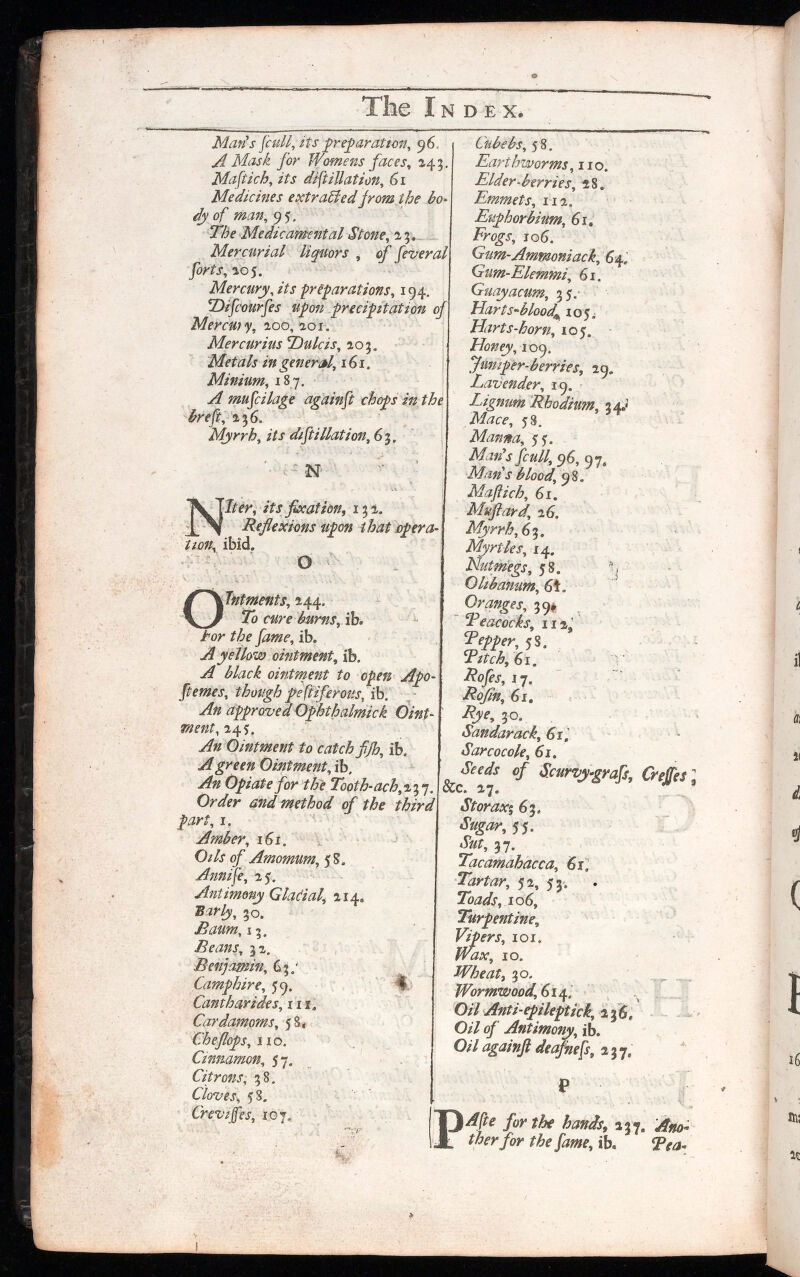 The INDEX.
Man's ſcull, its preparation, 96.
A Mask for Womens faces, 243.
Maſtich, its diſtillation, 61
Medicines extracted from the bo-
dy of man, 95.
The Medicamental Stone, 23.
Mercurial liquors , of ſeveral
ſorts, 205.
Mercury, its preparations, 194.
Diſcourſes upon precipitation of
Mercury, 200, 201.
Mercurius Dulcis, 203.
Metals in general, 161.
Minium, 187.
A muſcilage againſt chops in the
breſt, 236.
Myrrh, its diſtillation, 63.
N
NIter, its fixation, 132.
Reflexions upon that opera-
tion, ibid.
O
OIntments, 244.
To cure burns, ib.
For the ſame, ib.
A yellow ointment, ib.
A black ointment to open Apo-
ſtemes, though peſtiferous, ib.
An approved Ophthalmick Oint-
ment, 245.
An Ointment to catch fiſh, ib.
A green Ointment, ib.
An Opiate for the Tooth-ach, 237.
Order and method of the third
part, 1.
Amber, 161.
Oils of Amomum, 58.
Anniſe, 25.
Antimony Glacial, 214.
Barly, 30.
Baum, 13.
Beans, 32.
Benjamin, 63.
Camphire, 59.
Cantharides, 111.
Cardamoms, 58.
Cheſlops, 110.
Cinnamon, 57.
Citrons, 38.
Cloves, 58.
Creviſſes, 107.
Cubebs, 58.
Earthworms, 110.
Elder-berries, 28.
Emmets, 112.
Euphorbium, 61.
Frogs, 106.
Gum-Ammoniack, 64.
Gum-Elemmi, 61.
Guayacum, 35.
Harts-blood, 105.
Harts-horn, 105.
Honey, 109.
Juniper-berries, 29.
Lavender, 19.
Lignum Rhodium, 34.
Mace, 58.
Manna, 55.
Man's ſcull, 96, 97.
Man's blood, 98.
Maſtich, 61.
Muſtard, 26.
Myrrh, 63.
Myrtles, 14.
Nutmegs, 58.
Olibanum, 61.
Oranges, 39.
Peacocks, 112,
Pepper, 58.
Pitch, 61.
Roſes, 17.
Roſin, 61.
Rye, 30.
Sandarack, 61,
Sarcocole, 61.
Seeds of Scurvy-graſs, Creſſes,
&c. 27.
Storax; 63.
Sugar, 55.
Sut, 37.
Tacamahacca, 61.
Tartar, 52, 53.
Toads, 106,
Turpentine,
Vipers, 101.
Wax, 10.
Wheat, 30.
Wormwood, 614.
Oil Anti-epileptick, 236.
Oil of Antimony, ib.
Oil againſt deafneſs, 237.
P
PAſte for the hands, 237. Ano-
ther for the ſame, ib. Pea-